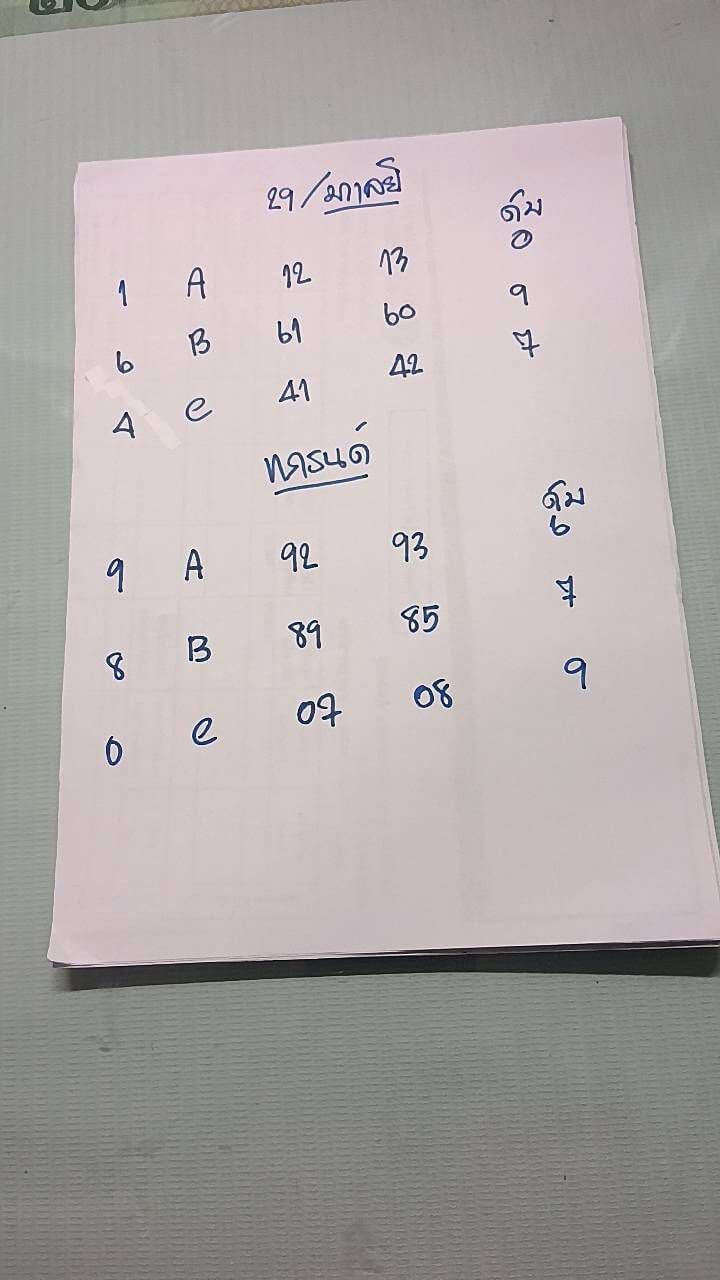 29/มาเลย์
ดับ
1 A 12 13 0
6 B 61 60 9
4 C 41 42 7
ทดรนด์
ดับ
9 A 92 93 6
8 B 89 85 7
0 C 07 08 9